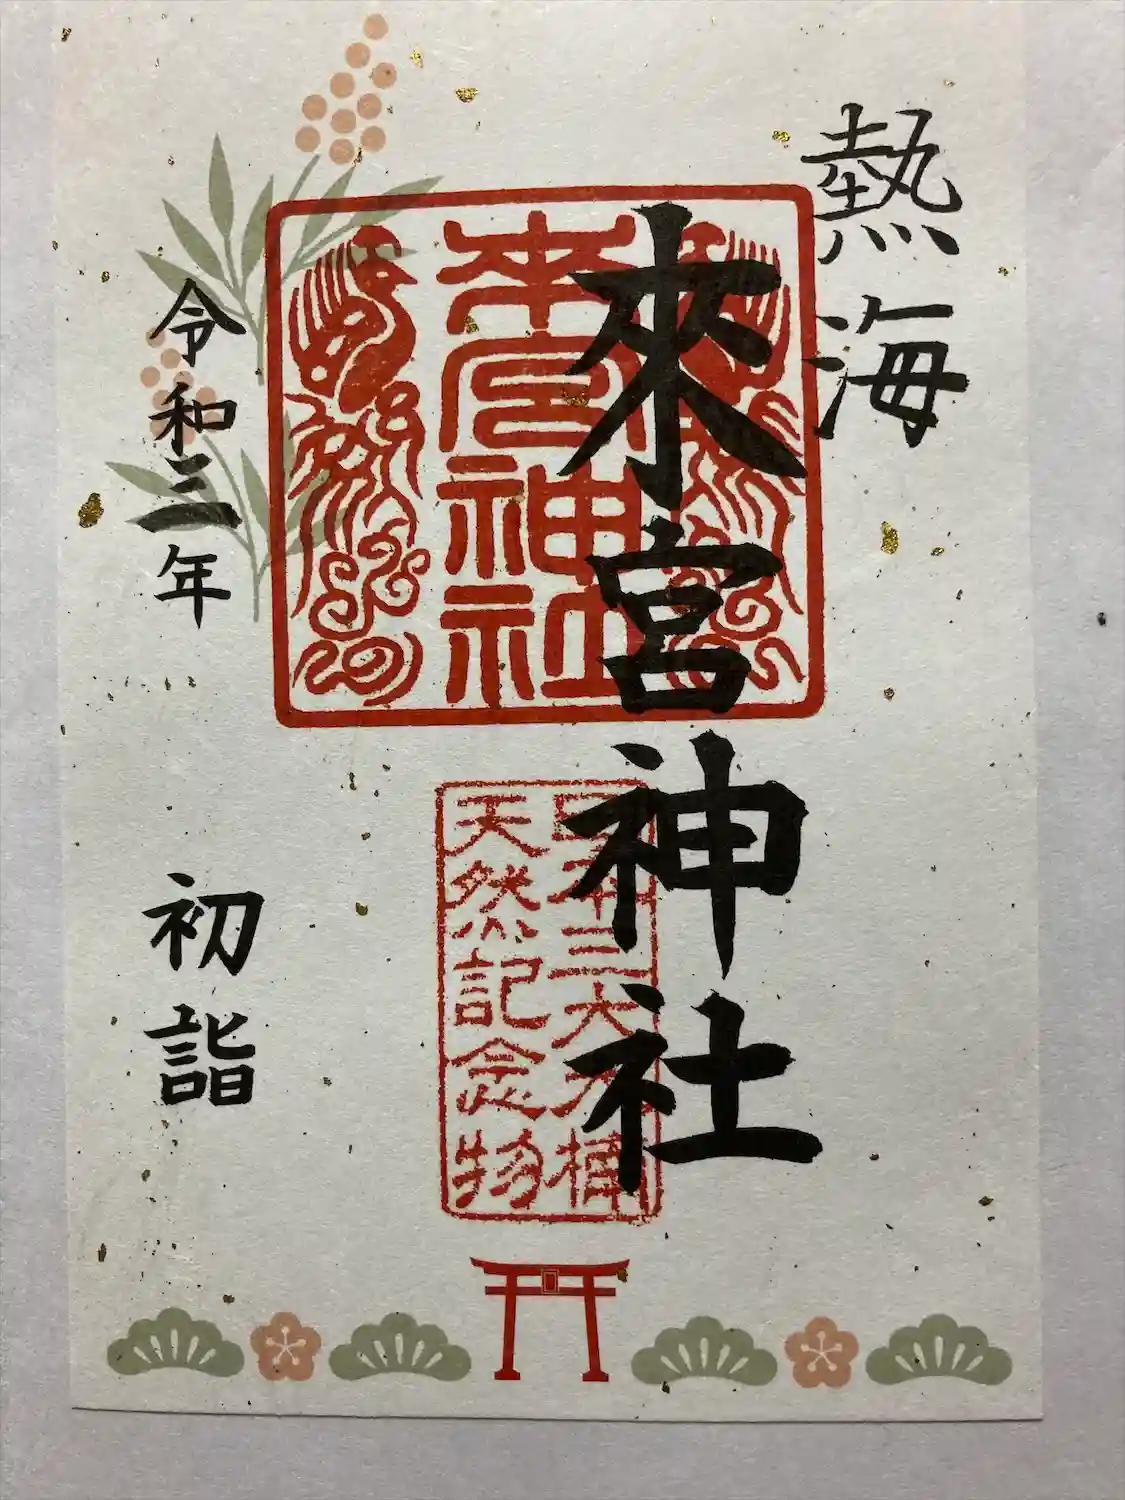 熱海
來宮神社
來宮神社
日本三大大楠
天然記念物
令和三年
初詣